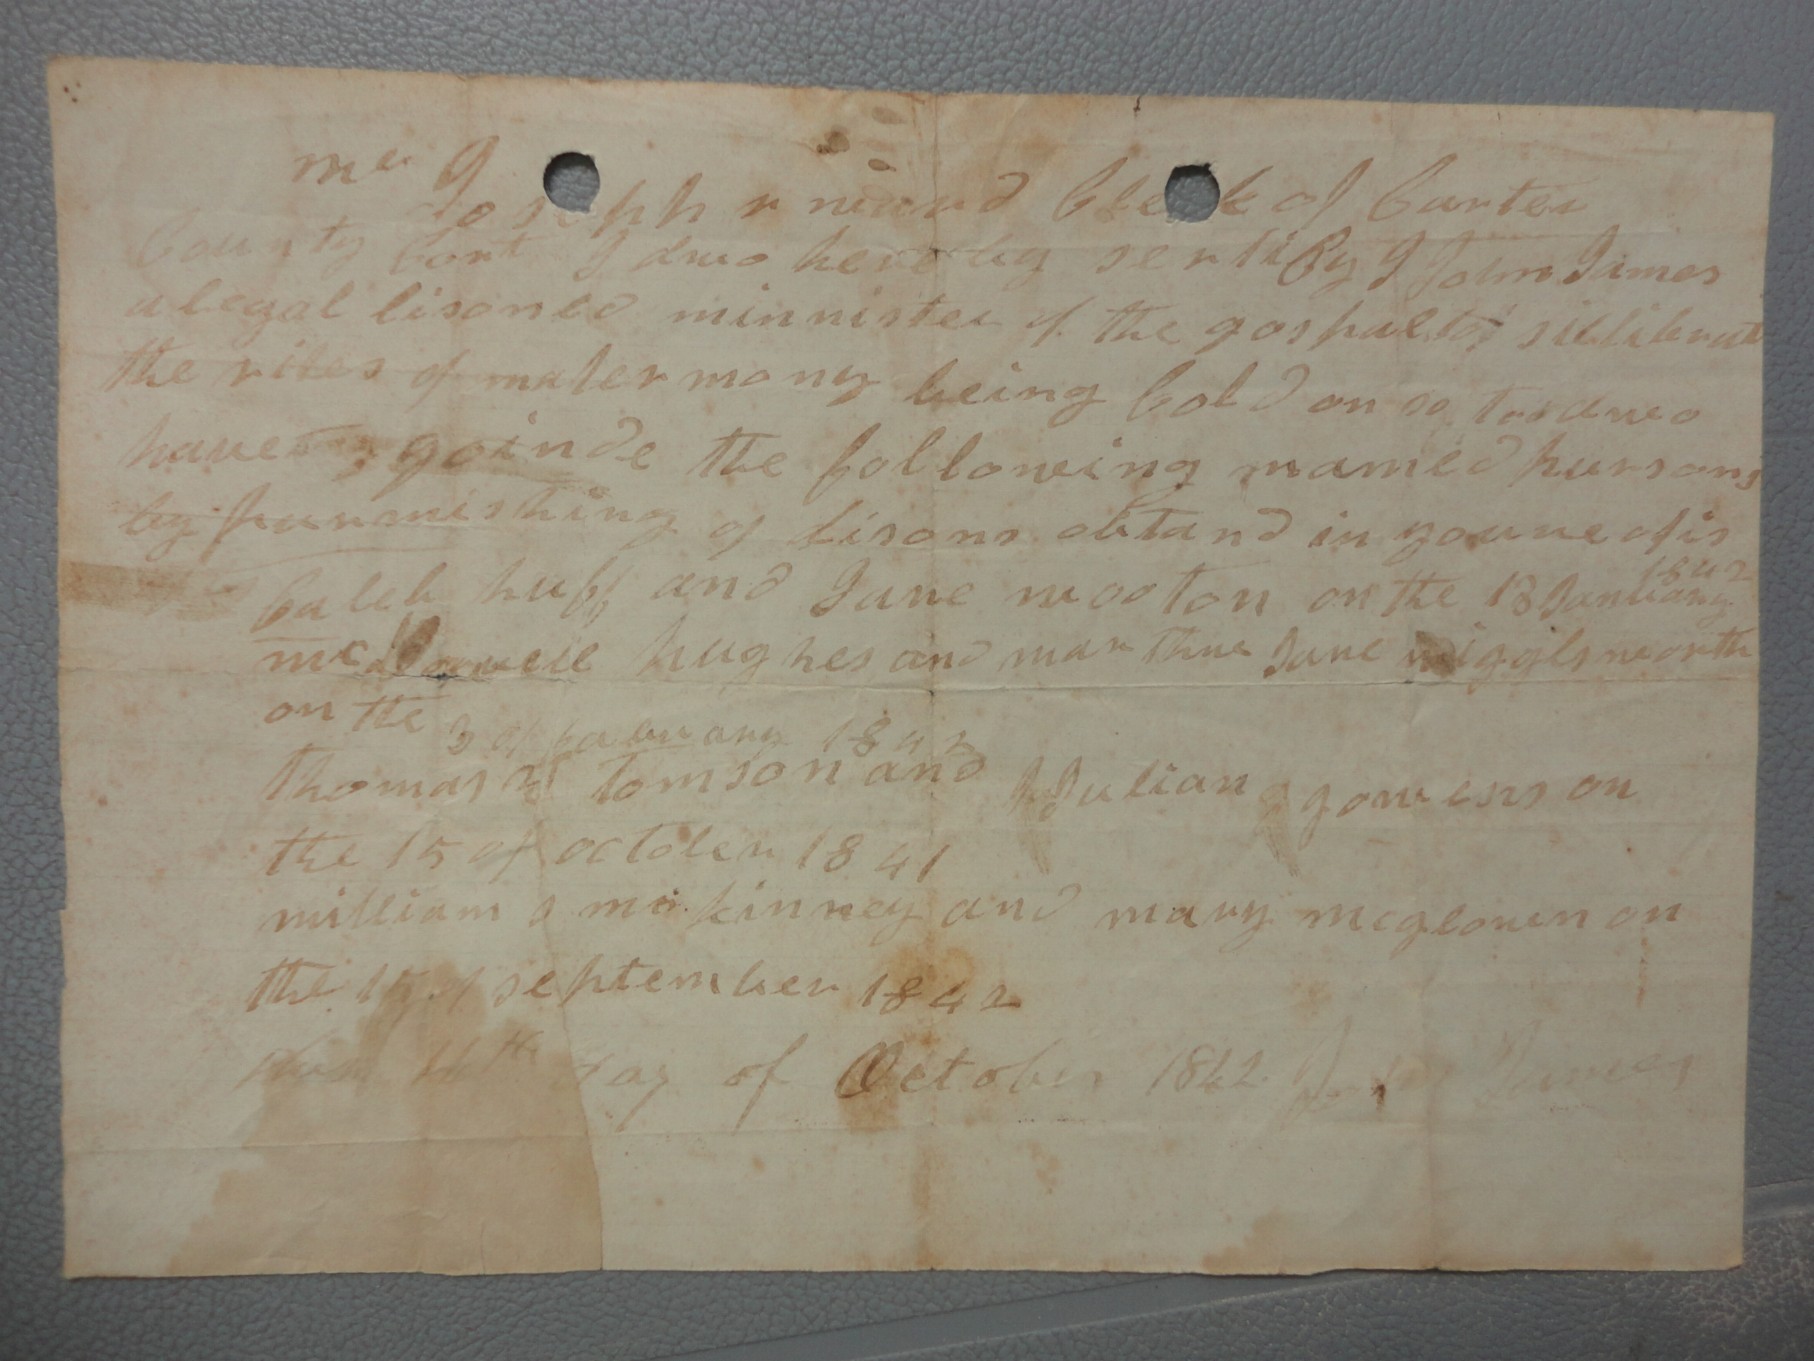 mr J
Joseph r nd Clerk of Carter
County Cort I dwo hereby sertify I John James
a legal lisoned minnister of the gospal to sillibrat
the rites of matermony being Cold on so to dwo
have goinde the following named pursons
by purmishing of lisons obtand in youre ofis
Caleb huff and Jane wooton on the 13 January 1842
mcdowell hughes and mar thue Jane wigglsworth
on the 3 of fabuuary 1842
thomas tomson and Julian gowens on
the 15 of october 1841
william s mckinney and mary mcglown on
the 15 of september 1842
this 14th day of October 1842 John James